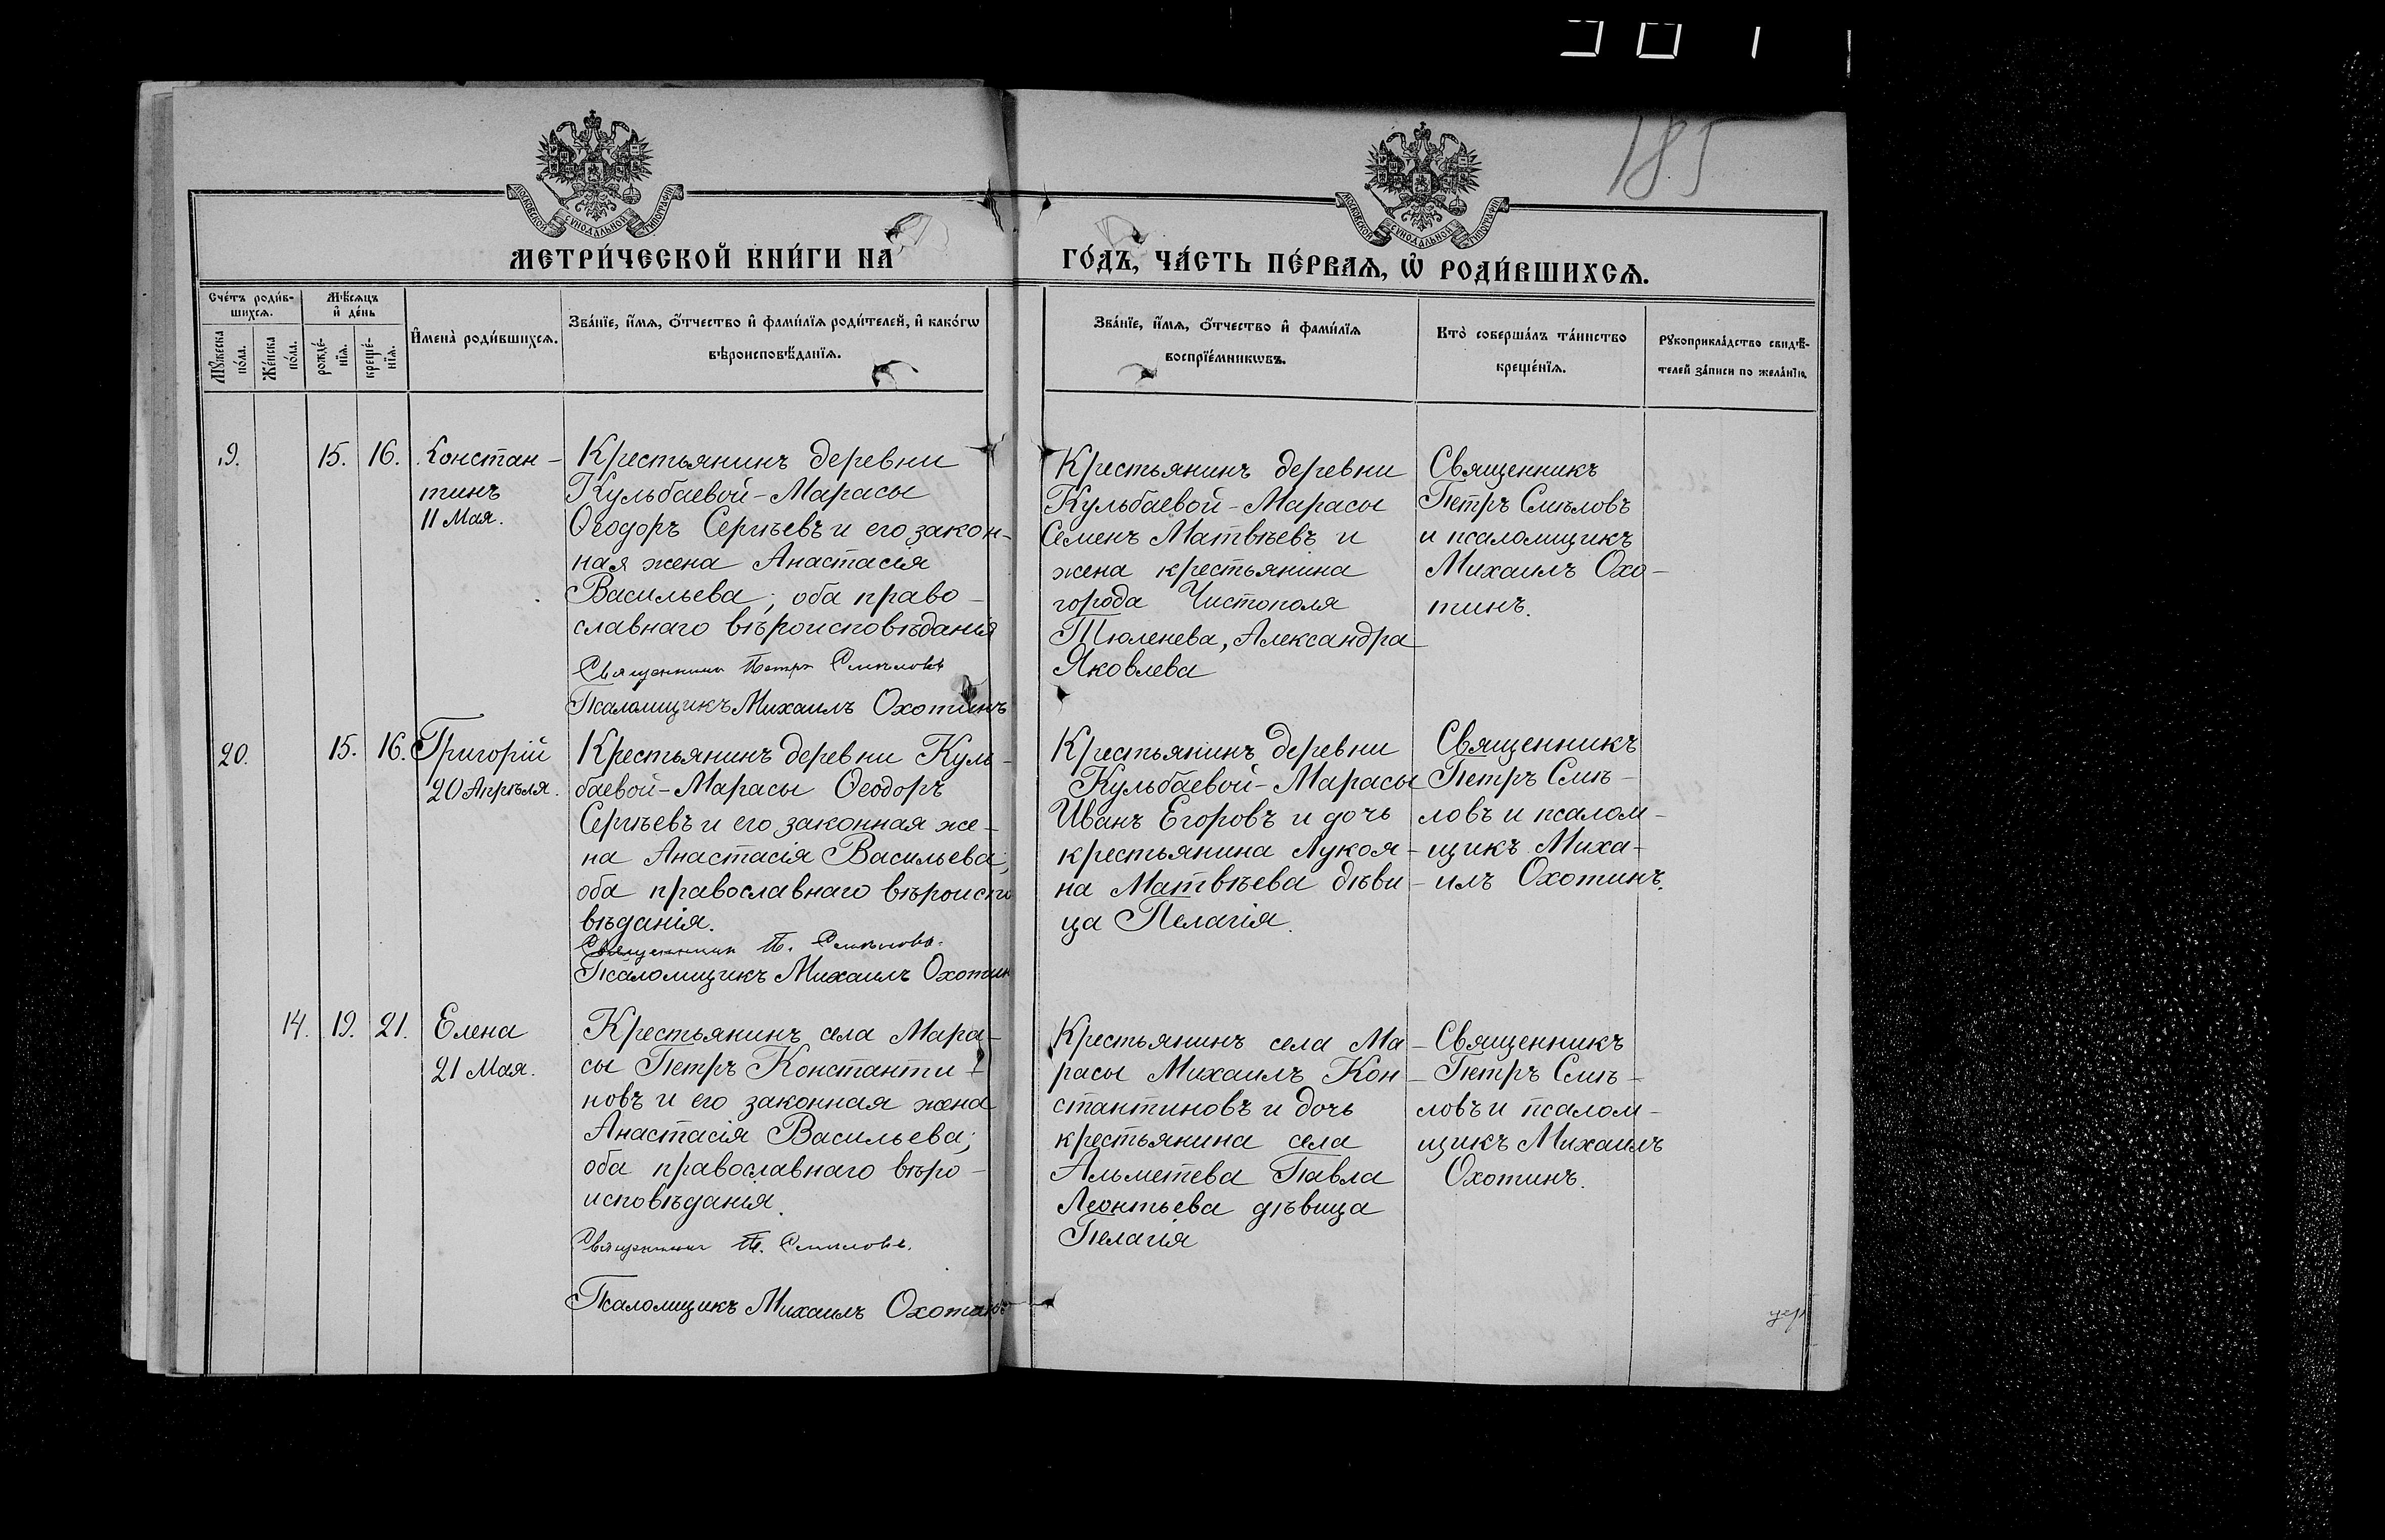 185
МОСКОВСКОЙ СѴНОДАЛЬНОЙ ТИПОГРАФІИ
МОСКОВСКОЙ СѴНОДАЛЬНОЙ ТИПОГРАФІИ
МЕТРИ́ЧЕСКОЙ КНИ́ГИ НА
ГО́ДЪ, ЧА́СТЬ ПЕ́РВАѦ, Ѡ҆ РОДИ́ВШИХСѦ.
Сче́тъ роди́в-
шихсѧ.
Мꙋ́жеска
по́ла.
Же́нска
по́ла.
Мѣ́сѧцъ
и҆ де́нь
рожде́-
нїѧ.
креще́-
нїѧ.
И҆мена̀ роди́вшихсѧ.
Зва́нїе, и҆́мѧ, ѻ҆́тчество и҆ фами́лїѧ роди́телей, и҆ како́гѡ
вѣроисповѣ́данїѧ.
Зва́нїе, и҆́мѧ, ѻ҆́тчество и҆ фами́лїѧ
воспрїе́мникѡвъ.
Кто̀ соверша́лъ та́инство
креще́нїѧ.
Рꙋкоприкла́дство свидѣ́-
телей за́писи по жела́нїю.
19.
15.
16.
Констан-
тинъ
11 Мая.
Крестьянинъ деревни
Кульбаевой-Марасы
Ѳеодоръ Сергѣевъ и его закон-
ная жена Анастасія
Васильева; оба право-
славнаго вѣроисповѣданія
Священникъ Петръ Смѣловъ
Псаломщикъ Михаилъ Охотинъ
Крестьянинъ деревни
Кульбаевой-Марасы
Семенъ Матвѣевъ и
жена крестьянина
города Чистополя
Тюленева, Александра
Яковлева
Священникъ
Петръ Смѣловъ
и псаломщикъ
Михаилъ Охо-
тинъ.
20.
15.
16.
Григорій
20 Апрѣля.
Крестьянинъ деревни Куль-
баевой-Марасы Ѳеодоръ
Сергѣевъ и его законная же-
на Анастасія Васильева;
оба православнаго вѣроиспо
вѣданія.
Священникъ П. Смѣловъ.
Псаломщикъ Михаилъ Охотин
Крестьянинъ деревни
Кульбаевой-Марасы
Иванъ Егоровъ и дочь
крестьянина Лукоя-
на Матвѣева дѣви-
ца Пелагія.
Священникъ
Петръ Смѣ-
ловъ и псалом-
щикъ Миха-
илъ Охотинъ.
14.
19.
21.
Елена
21 Мая.
Крестьянинъ села Мара-
сы Петръ Константи-
новъ и его законная жена
Анастасія Васильева;
оба православнаго вѣро-
исповѣданія.
Священникъ П. Смѣловъ.
Псаломщикъ Михаилъ Охотинъ
Крестьянинъ села Ма-
расы Михаилъ Кон-
стантиновъ и дочь
крестьянина села
Альметева Павла
Леонтьева дѣвица
Пелагія
Священникъ
Петръ Смѣ-
ловъ и псалом-
щикъ Михаилъ
Охотинъ.